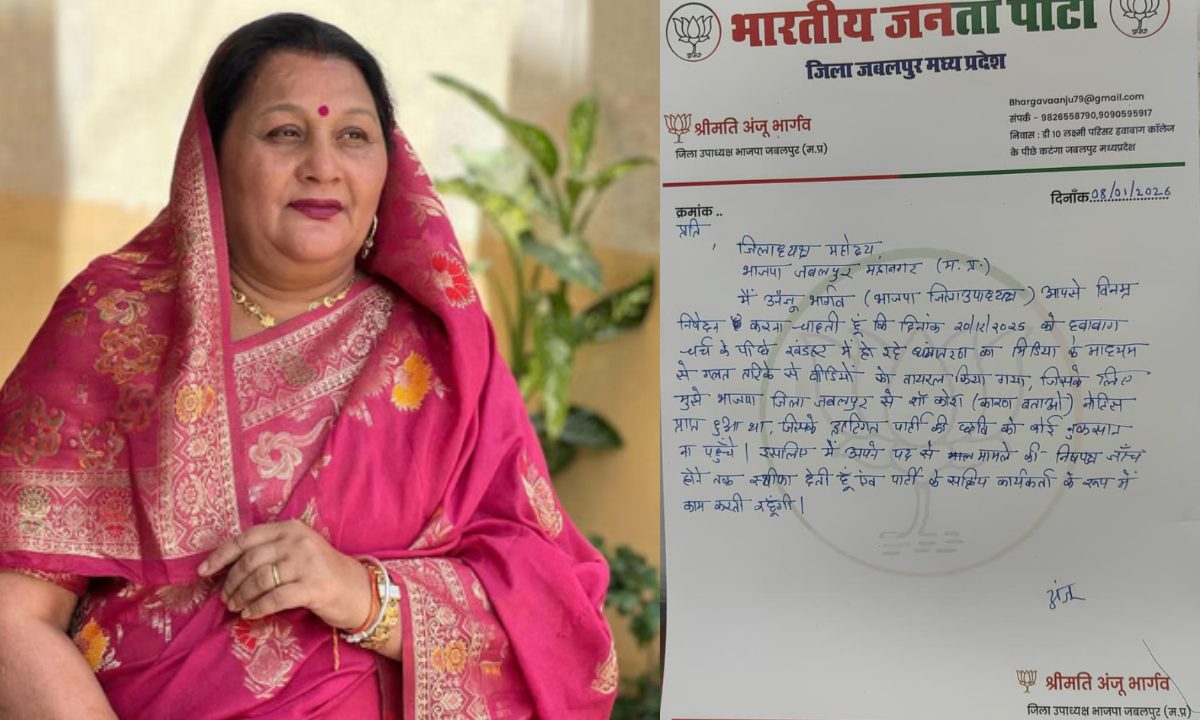 भारतीय जनता पार्टी
जिला जबलपुर मध्य प्रदेश
श्रीमति अंजू भार्गव
जिला उपाध्यक्ष भाजपा जबलपुर (म.प्र)
Bhargavaanju79@gmail.com
संपर्क - 9826558790,9090595917
निवास : डी 10 लक्ष्मी परिसर हवाबाग कॉलेज
के पीछे कटंगा जबलपुर मध्यप्रदेश
क्रमांक ..
दिनाँक 08/01/2026
प्रति,
जिलाध्यक्ष महोदय,
भाजपा जबलपुर महानगर (म.प्र.)
मैं अंजू भार्गव (भाजपा जिलाउपाध्यक्ष) आपसे विनम्र
निवेदन करना चाहती हूँ कि दिनांक 20/12/2025 को हवाबाग
चर्च के पीछे खंडहर में हो रहे धर्मांतरण का मिडिया के माध्यम
से गलत तरिके से वीडियो को वायरल किया गया, जिसके लिए
मुझे भाजपा जिला जबलपुर से शो कोश (कारण बताओ) नोटिस
प्राप्त हुआ था, जिसके पार्टी की छवि को कोई नुकसान
ना पहुँचे। इसलिए में अपने पद से मामले की निष्पक्ष जाँच
होने तक स्थीफा देती हूँ एंव पार्टी के सक्रिय कार्यकर्ता के रूप में
काम करती रहूँगी।
अंजू
श्रीमति अंजू भार्गव
जिला उपाध्यक्ष भाजपा जबलपुर (म.प्र)